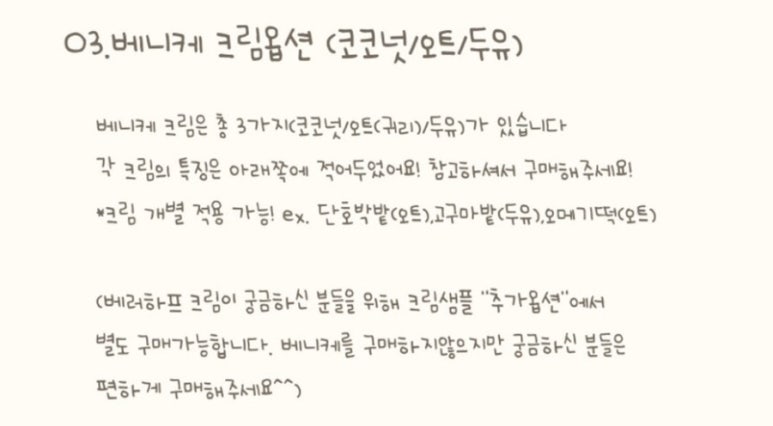 03.베니케 크림옵션 (코코넛/오트/두유)
베니케 크림은 총 3가지(코코넛/오트(귀리)/두유)가 있습니다
각 크림의 특징은 아래쪽에 적어두었어요! 참고하셔서 구매해주세요!
*크림 개별 적용 가능! ex. 단호박밭(오트),고구마밭(두유),오메기떡(오트)
(베러하프 크림이 궁금하신 분들을 위해 크림샘플 "추가옵션"에서
별도 구매가능합니다. 베니케를 구매하지않으지만 궁금하신 분들은
편하게 구매해주세요^^)